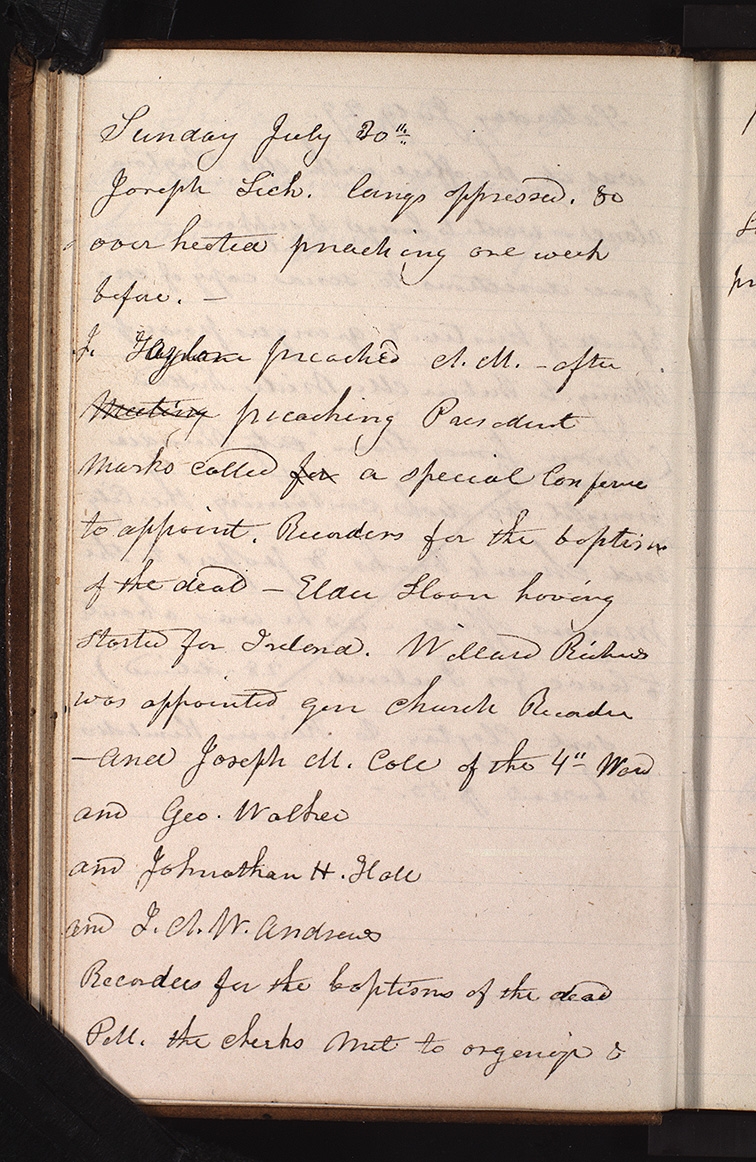 Sunday July 30th
Joseph Sick. lungs oppressed. &
over heated preaching one week
before. —
J. Taylor preached A.M. – after
Meeting preaching President
Marks called for a special Confernce
to appoint. Recorders for the baptism
of the dead – Elder Sloan having
started for Ireland. Willard Richards
was appointed gen church Recorder
– and Joseph M. Cole of the 4th Ward
and Geo. Walker
and Johnathan H. Hale
and J. A. W. Andrews
Recorders for the baptisms of the dead
P.M. the clerks met to organize &